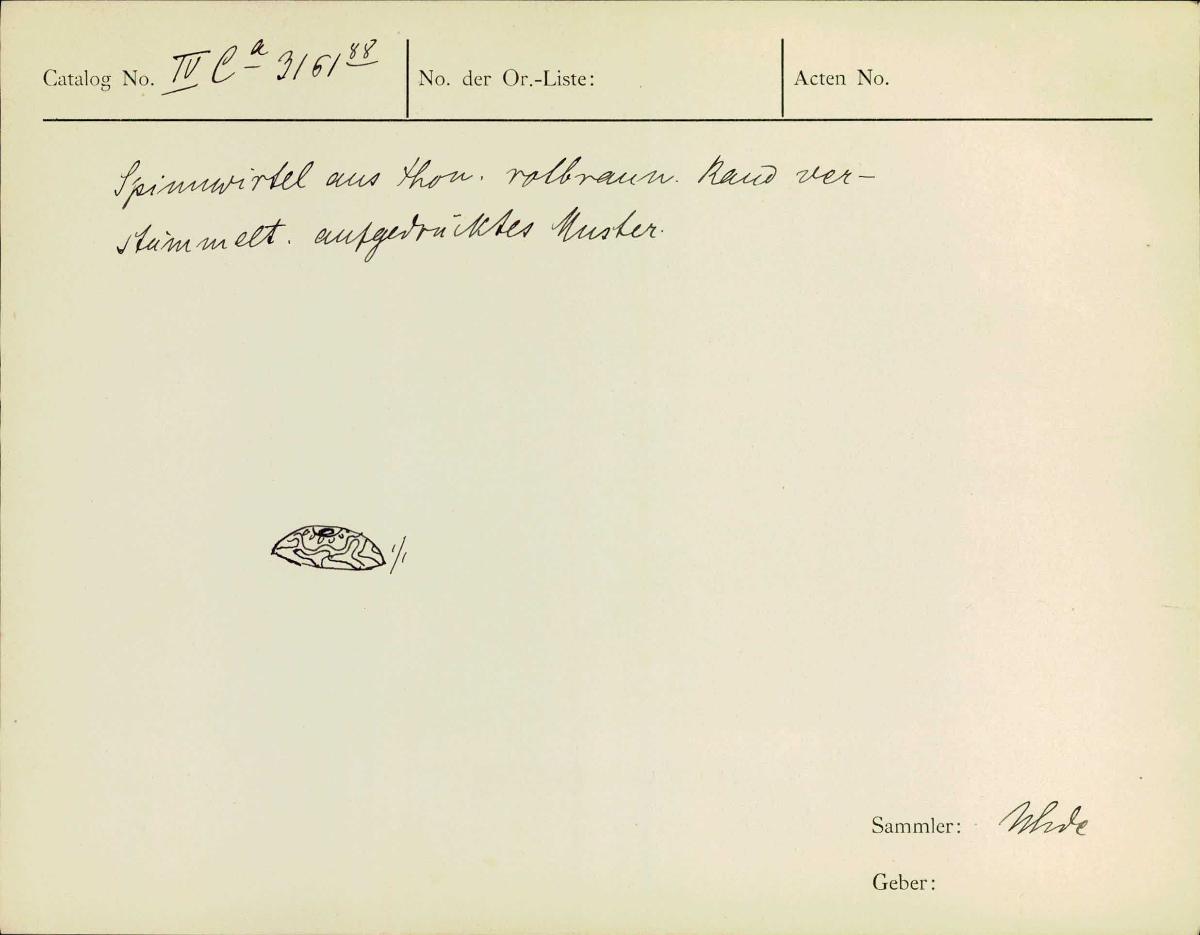 Catalog No. IV Ca 3161 88
No. der Or.-Liste:
Acten No.
Spinnwirtel aus Thon. rotbraun. Rand ver-
stümmelt. aufgedrücktes Muster.
1/1
Sammler: Uhde
Geber: